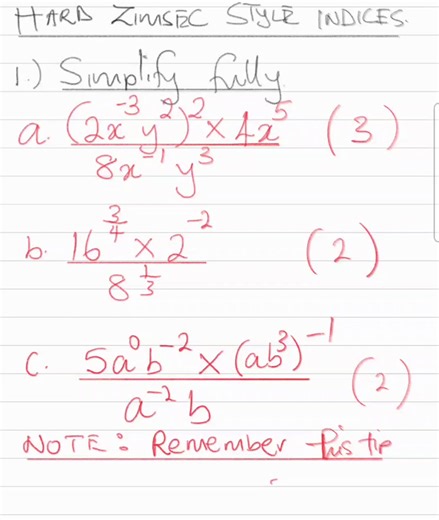 HARD ZIMSEC STYLE INDICES.
1.) Simplify fully
a. (2x⁻³y²)² × 4x⁵ / 8x⁻¹y³ (3)
b. 16^(3/4) × 2⁻² / 8^(1/3) (2)
c. 5a⁰b⁻² × (ab³)⁻¹ / a⁻²b (2)
NOTE: Remember this tip